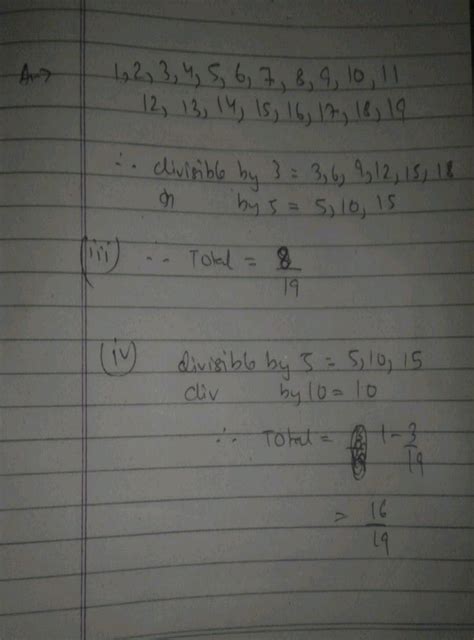 Ans→ 1, 2, 3, 4, 5, 6, 7, 8, 9, 10, 11
12, 13, 14, 15, 16, 17, 18, 19
∴ divisible by 3 = 3, 6, 9, 12, 15, 18
or by 5 = 5, 10, 15
(iii) ∴ Total = 8/19
(iv) divisible by 5 = 5, 10, 15
div by 10 = 10
∴ Total = 1 - 3/19
= 16/19